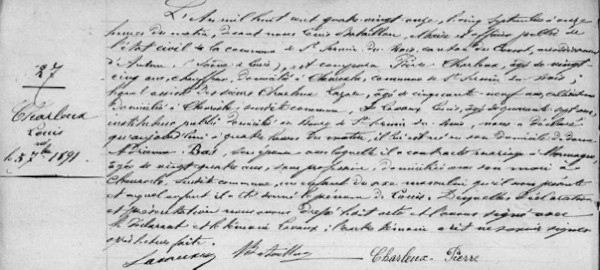 27
Charleux
Louis
né
le 5 7bre 1891
L'An mil huit cent quatre vingt onze, le cinq Septembre à onze
heures du matin, devant nous Louis Batailler, Maire et officier public de
l'état civil de la commune de St Sernin du Bois, canton du Creusot, arrondissement
d'Autun, (Saône & Loire), est comparu Pierre Charleux, âgé de vingt
cinq ans, chauffeur, domicilié à commune de St Sernin du Bois;
lequel assisté des sieurs Charleux âgé de cinquante neuf ans,
domicilié à susdite commune, et Louis, âgé de quarante sept ans,
instituteur public domicilié au Bourg de St Sernin du Bois, nous a déclaré
qu'aujourd'hui à quatre heures du matin, il lui est né en son domicile de dame
son épouse avec laquelle il a contracté mariage à
âgée de vingt quatre ans, sans profession, domiciliée avec son mari à
susdite commune, un enfant du sexe masculin qu'il nous présente
et auquel enfant il a été donné le prénom de Louis. Desquelles déclaration
et présentation nous avons dressé ledit acte et l'avons signé avec
le déclarant et le témoin l'autre témoin a dit ne savoir signer
lecture faite.
Batailler Charleux Pierre